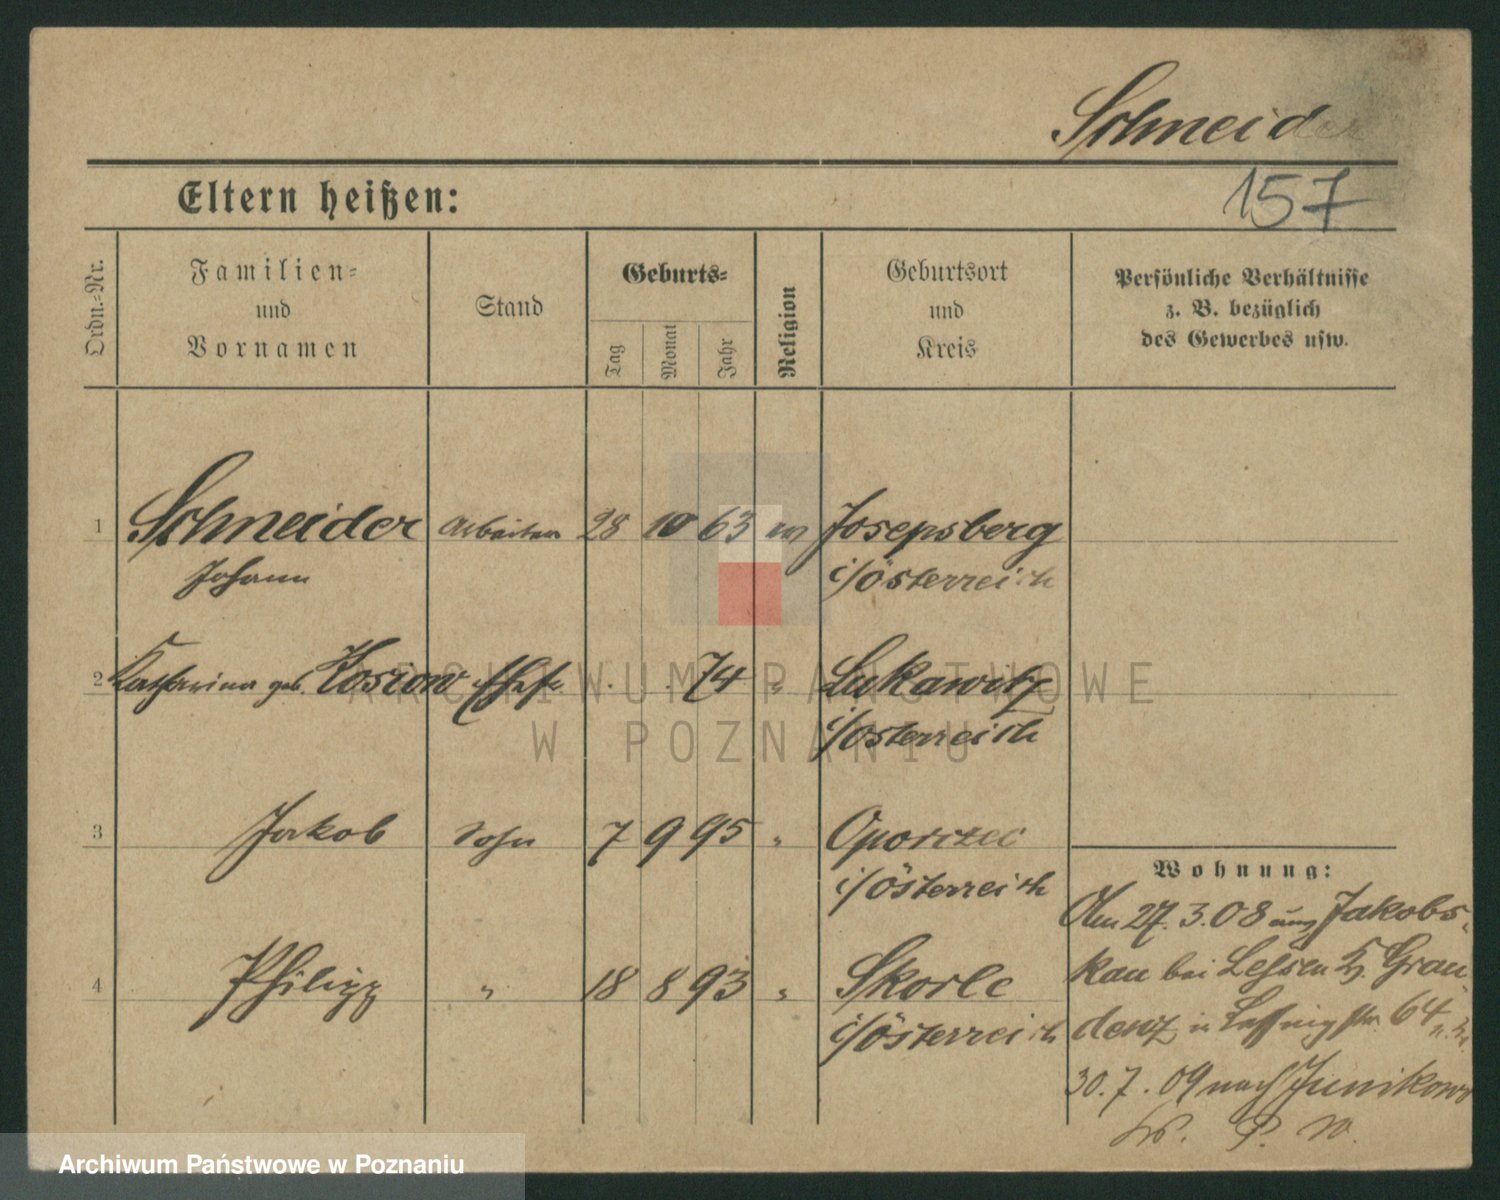 Schneider
157
Eltern heißen:
Ordn.-Nr.
Familien-
und
Vornamen
Stand
Geburts-
Tag
Monat
Jahr
Religion
Geburtsort
und
Kreis
Persönliche Verhältnisse
z. B. bezüglich
des Gewerbes usw.
1 Schneider Arbeiter 28 10 63 Josepsberg
Johann i/Österreich
2 Katharina geb. Kosiow Ehefr. . . 74 " Lukawitz
i/Österreich
3 Jakob Sohn 7 9 95 " Oporczec
i/Österreich
4 Philipp " 18 8 93 " Skorle
i/Österreich
Wohnung:
Am 27.3.08 aus Jakobs-
kau bei Lessen Kr. Grau-
denz in 64
30.7.09 nach Junikowo
Kr. P. W.
ARCHIWUM PAŃSTWOWE
W POZNANIU
Archiwum Państwowe w Poznaniu